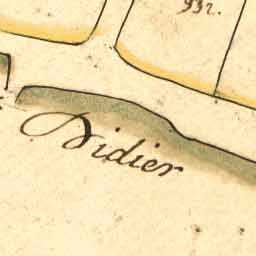 992.
Didier